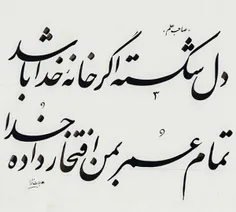 صاحب علم
دل شکسته اگر خانهٔ خدا باشد
۳
تمام عمر بمن افتخار داده خدا